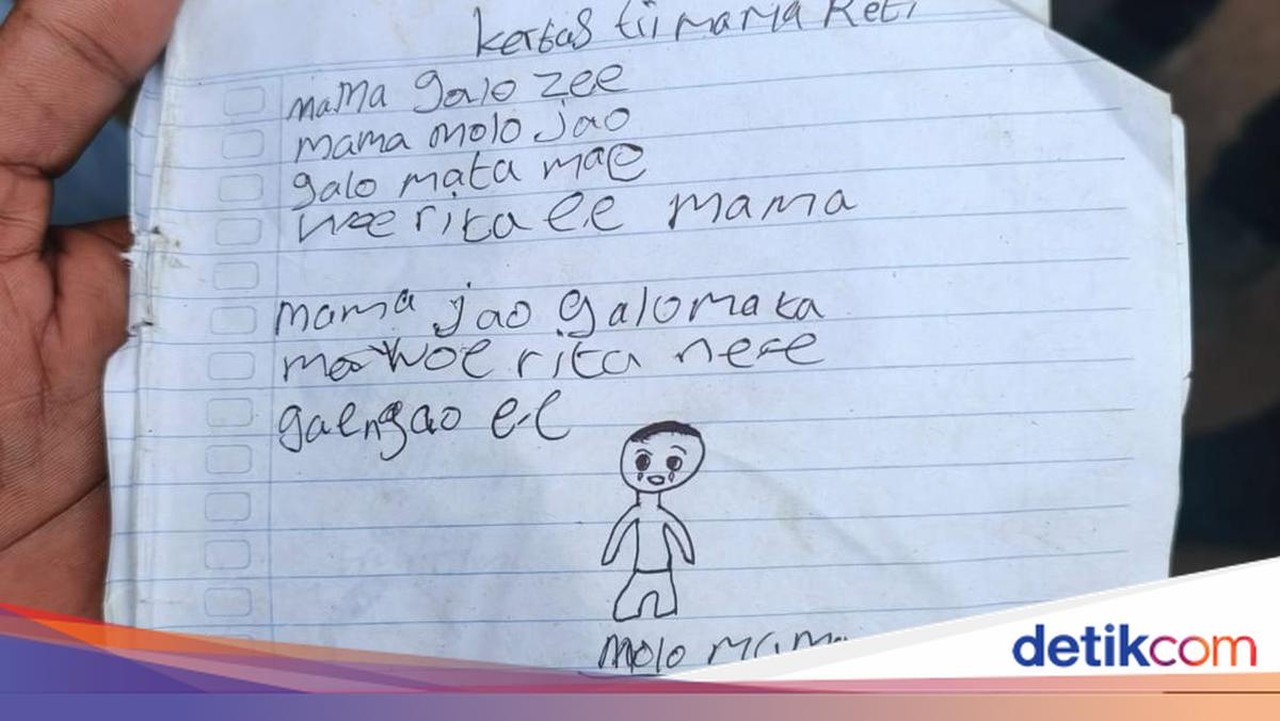 kertas tii mama Reti
mama galo zee
mama molo jao
galo mata mae
woe rita ee mama
mama jao galo mata
mae woe rita nee
gae ngao ee
molo mama
detikcom